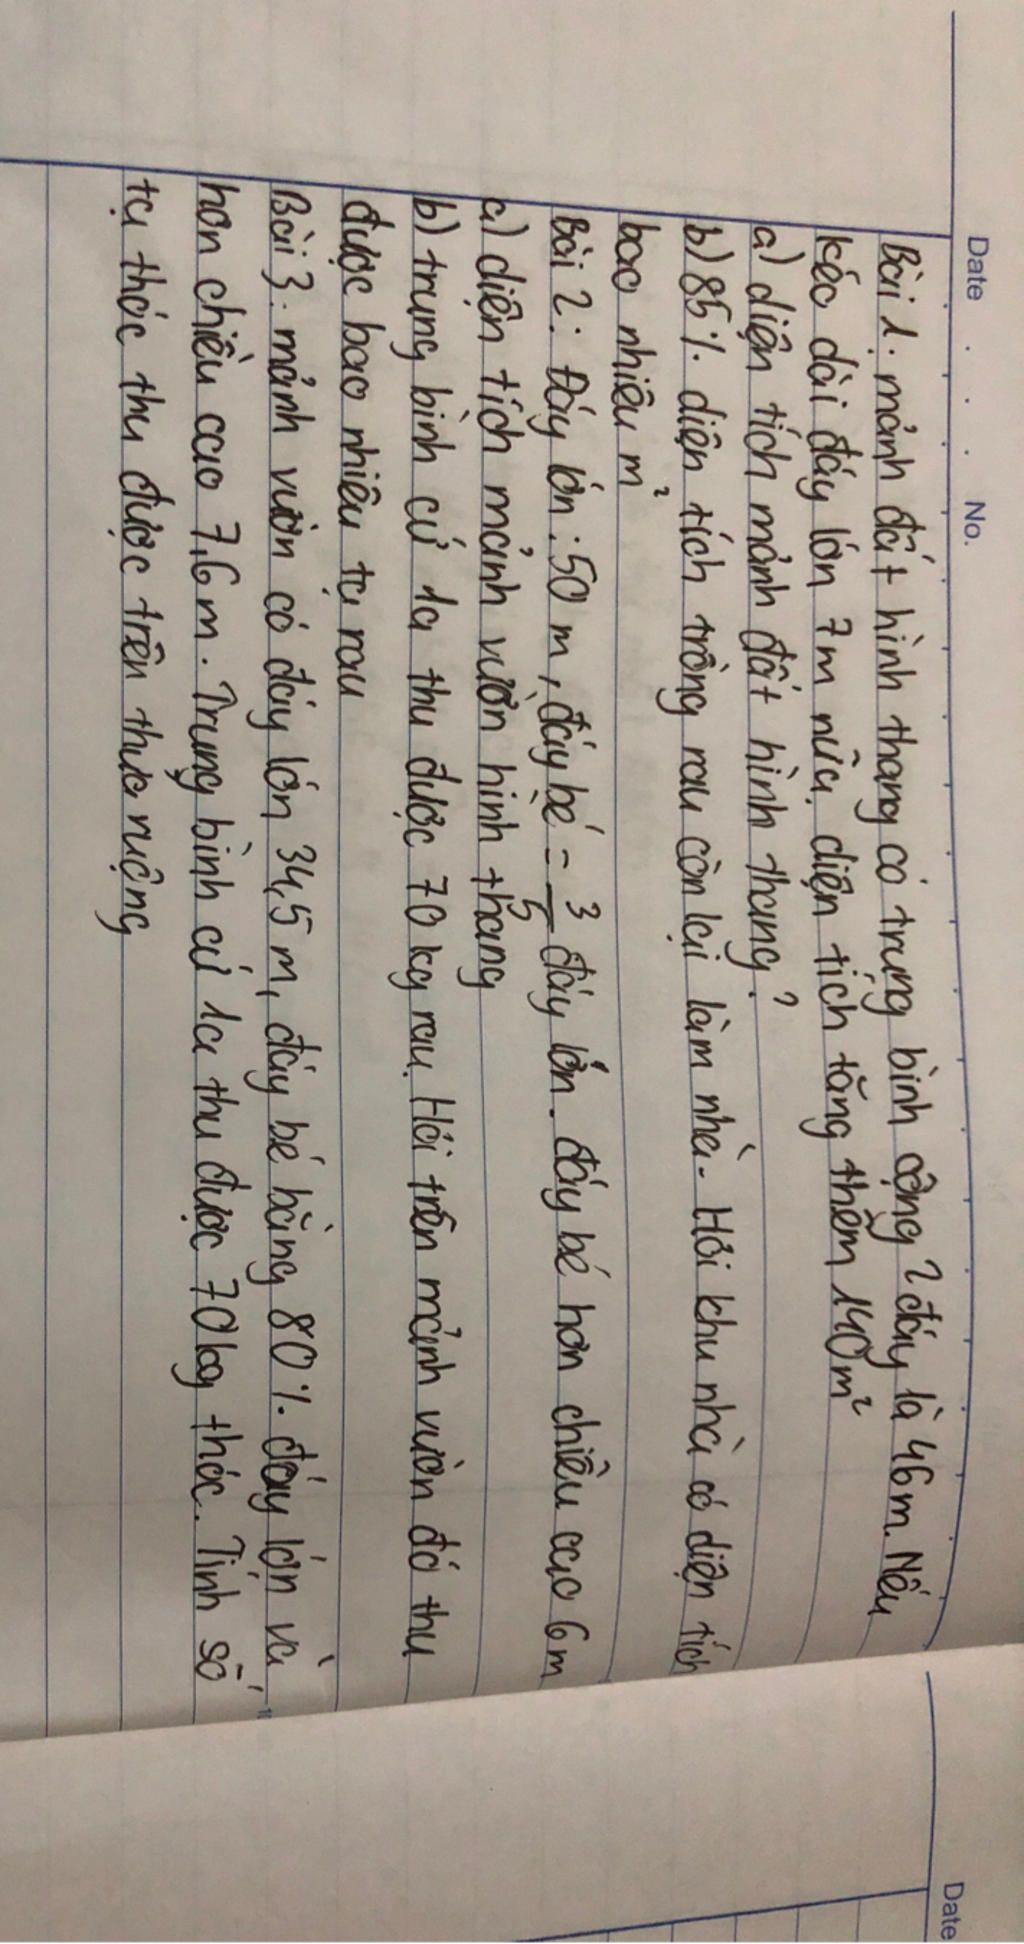 Date . . . No.
Bài 1. mảnh đất hình thang có trung bình cộng 2 đáy là 46m. Nếu
kéo dài đáy lớn 7m nữa. diện tích tăng thêm 140m²
a) diện tích mảnh đất hình thang?
b) 85% diện tích trồng rau còn lại làm nhà. Hỏi khu nhà có diện tích
bao nhiêu m²
Bài 2: Đáy lớn: 50 m, đáy bé = 3/5 đáy lớn. đáy bé hơn chiều cao 6m
a) diện tích mảnh vườn hình thang
b) trung bình cứ 1a thu được 70kg rau. Hỏi trên mảnh vườn đó thu
được bao nhiêu tạ rau
Bài 3: mảnh vườn có đáy lớn 34,5 m, đáy bé bằng 80% đáy lớn và
hơn chiều cao 7,6 m. Trung bình cứ 1a thu được 70kg thóc. Tính số
tạ thóc thu được trên thửa ruộng
Date